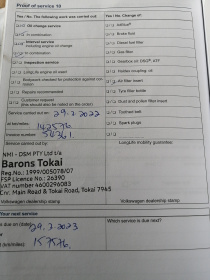 Proof of service 10
Yes / No The following work was carried out:
Yes / No Change of:
Oil change service
in combination:
Interval service
including engine oil change
in combination:
Inspection service
LongLife engine oil used
Bodywork checked for protection against corrosion
Repairs recommended
Customer request
(this should also be noted on the order)
AdBlue®
Brake fluid
Diesel fuel filter
Gas filter
Gearbox oil: DSG®, ATF
Haldex coupling oil
Air filter insert
Tyre filler bottle
Dust and pollen filter insert
Toothed belt
Spark plugs
Service carried out on: 29.2.2022
at km/miles: 142576
Invoice number: 54361
Service carried out by:
LongLife mobility guarantee
NMI - DSM PTY Ltd t/a
Barons Tokai
Reg No.: 1999/005078/07
FSP Licence No.: 26390
VAT number 4600296083
Cnr. Main Road & Tokai Road, Tokai 7945
Volkswagen dealership stamp
Volkswagen dealership stamp
Your next service
is due on (date): 29.2.2023
Which service is due next?
or (km/miles): 157576